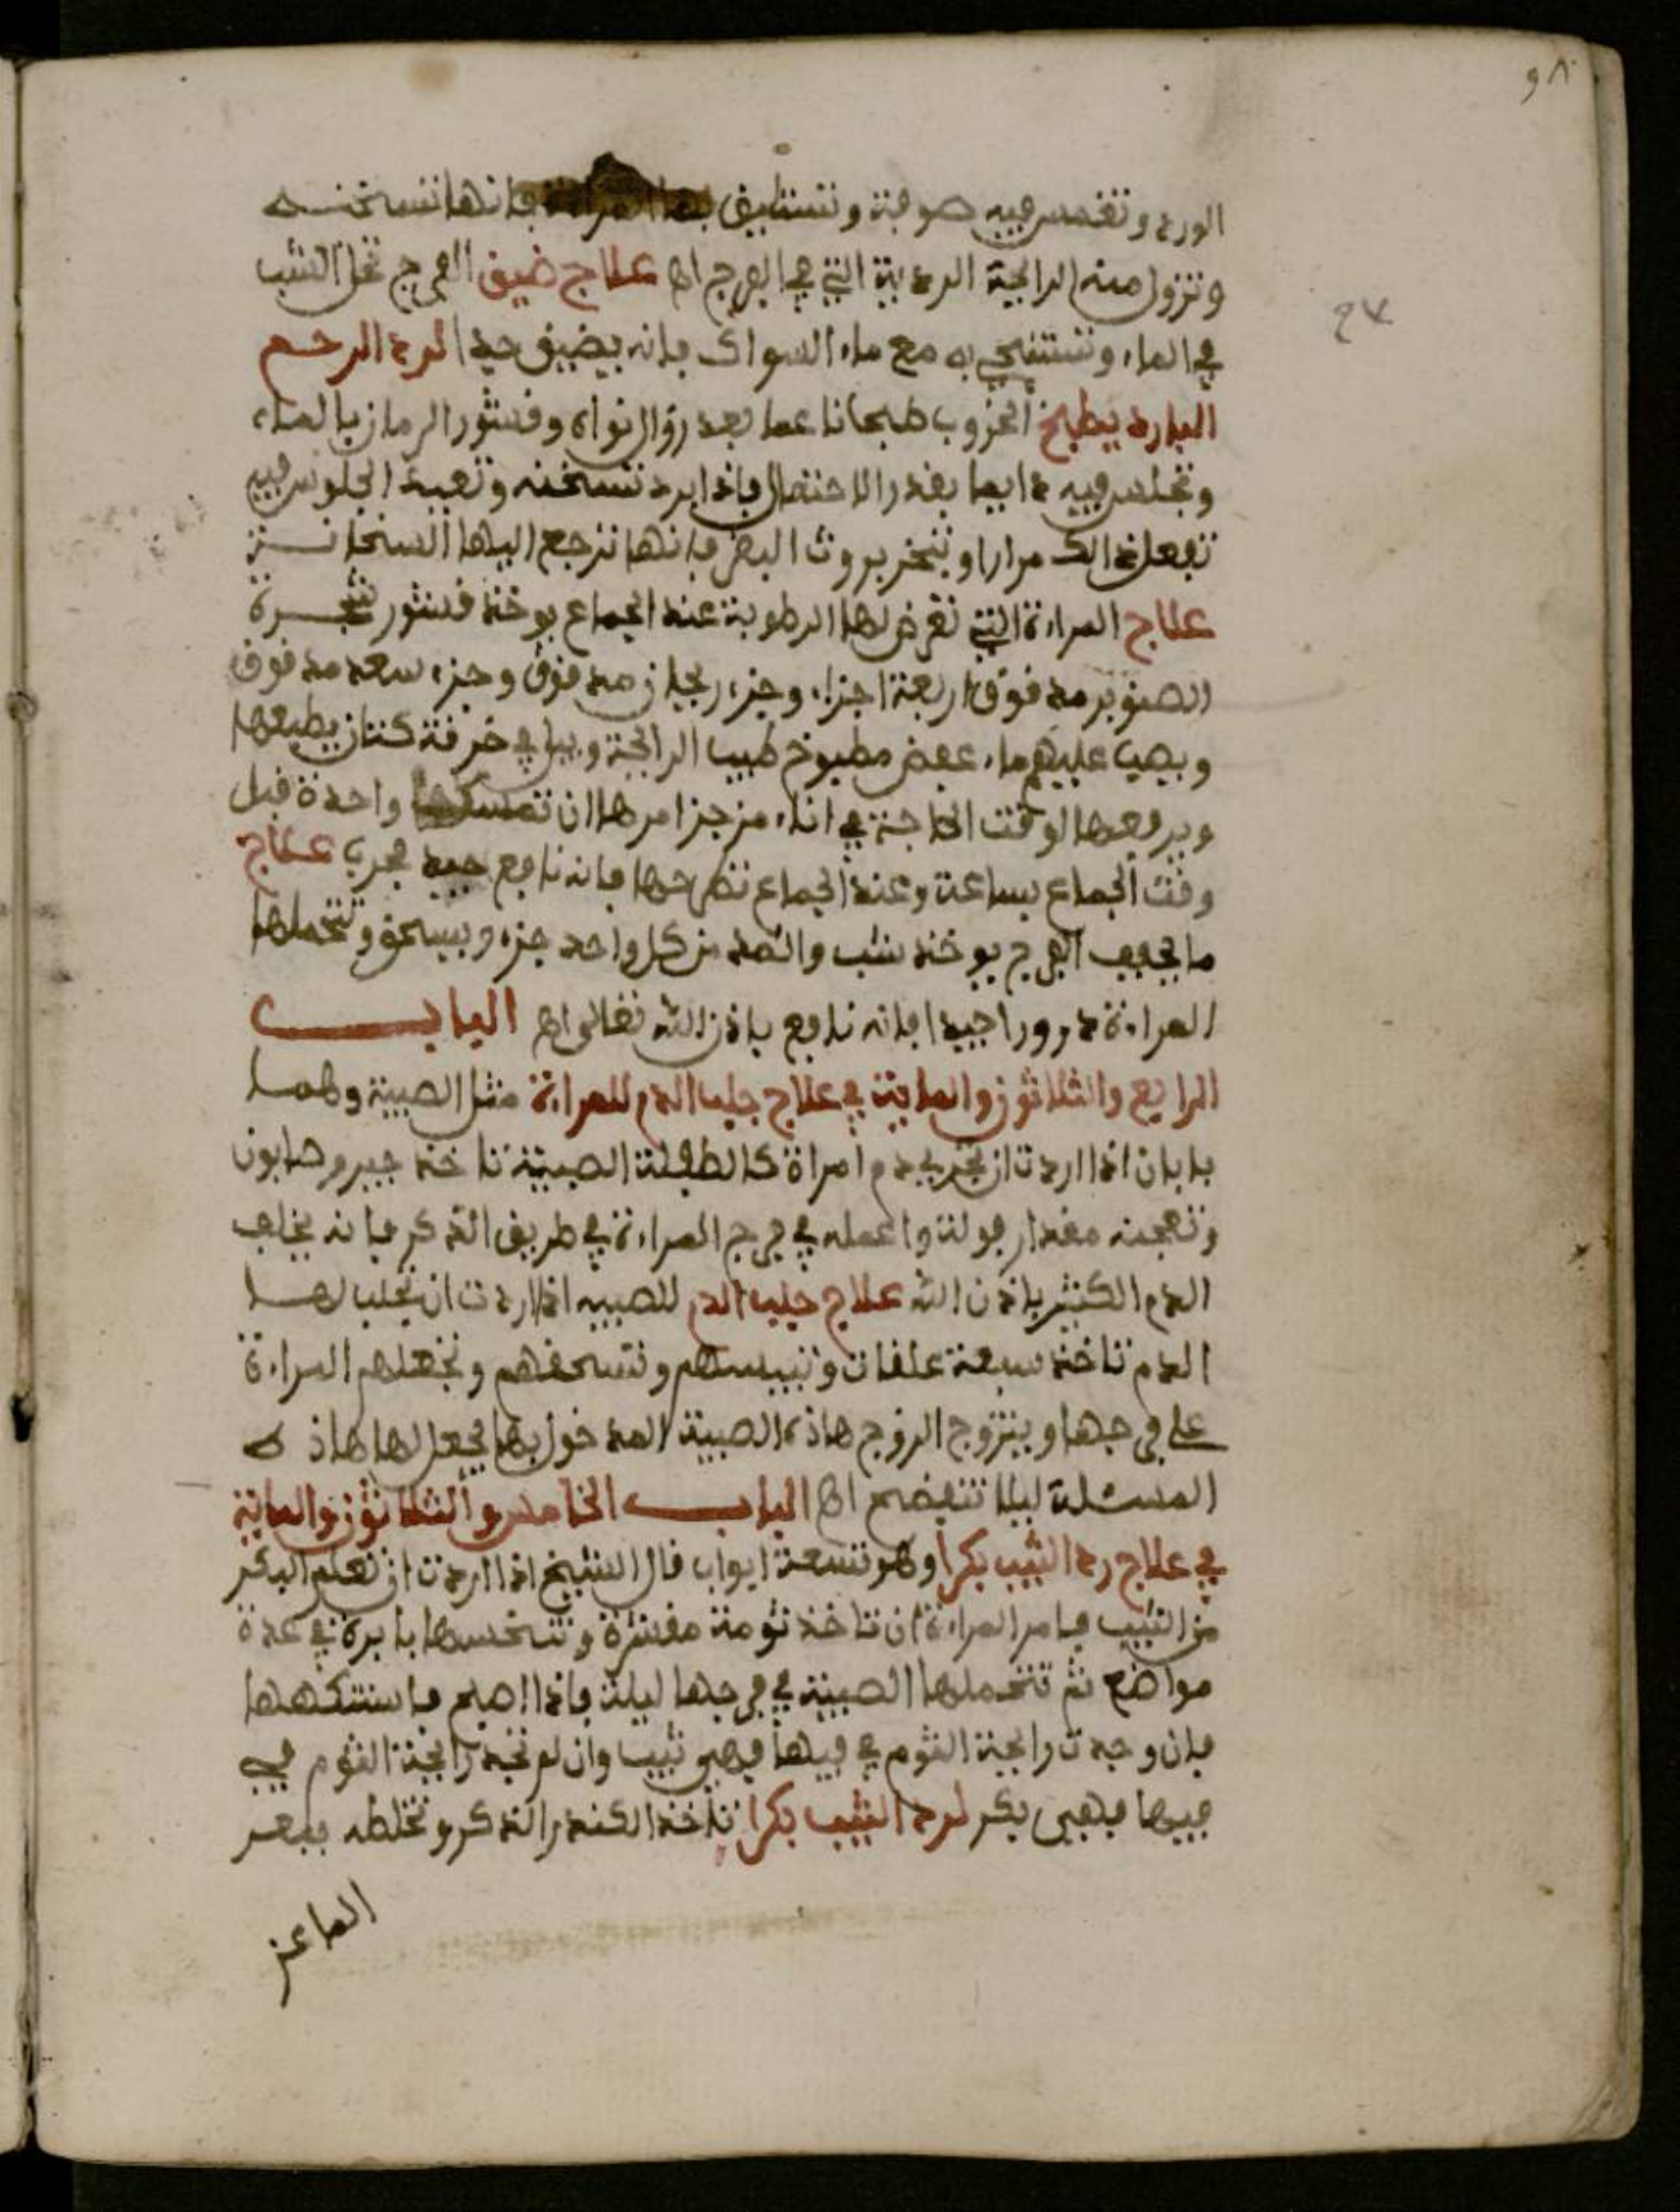 ٩٨
الورد وتغمس فيه صوفة وتستليق بها المراءة فانها تسخنه
وتزول منه الرايحة الردية التي في الفرج اهـ علاج ضيق الفرج تحل الشب
في الماء وتستنجي به مع ماء السواك فانه يضيق جيدا لرد الرحم
البارد يطبخ الخروب طبخا ناعما بعد زوال نواه وقشور الرمان بالماء
وتجلس فيه دايما بقدر الاحتمال فاذا برد تسخنه وتعيد الجلوس فيه
تفعل ذالك مرارا وتبخر بروث البقر فانها ترجع اليها السخانة
علاج المراءة التي تعرض لها الرطوبة عند الجماع يوخذ قشور شجرة
الصنوبر مدقوق اربعة اجزاء وجزء ريحان مدقوق وجزء سعد مدقوق
ويصب عليهم ماء عفص مطبوخ طيب الرايحة ويبل في خرقة كتان يطبعها
ويرفعها لوقت الحاجة في اناء من جزا مرها ان تمسكها واحدة قبل
وقت الجماع بساعة وعند الجماع تطرحها فانه نافع جيد مجرب علاج
ما يجفف الفرج يوخذ شب واثمد من كل واحد جزء ويسحق وتتحملها
المراءة درورا جيدا فانه نافع باذن الله تعالى اهـ البـاب
الرابع والثلاثون والماية في علاج جلب الدم للمراءة مثل الصبية وهما
بابان اذا اردت ان تجري دم امراة كالطفلة الصبية تاخذ جير وصابون
وتعجنه مقدار فولة واعمله في فرج المراءة في طريق الذكر فانه يخلف
الدم الكثير باذن الله علاج جلب الدم للصبيه اذا اردت ان تجلب لها
الدم تاخذ سبعة علقات وتيبسهم وتسحقهم وتجعلهم المراءة
على فرجها ويتزوج الزوج هاذه الصبية المدخول بها يجعل لها هاذه
المسئلة ليلا تتفضح اهـ البـاب الخامس والثلاثون والماية
في علاج رد الثيب بكرا وهو تسعة ابواب قال الشيخ اذا اردت ان تعلم البكر
من الثيب فامر المراءة ان تاخذ ثومة مقشرة وتنخسها بابرة في عدة
مواضع ثم تتحملها الصبية في فرجها ليلة فاذا اصبح فاستنكهها
فان وجدت رايحة الثوم في فيها فهي ثيب وان لم تجد رايحة الثوم في
فيها فهي بكر لرد الثيب بكرا تاخذ الكندر الذكر وتخلطه ببعر
الماعز